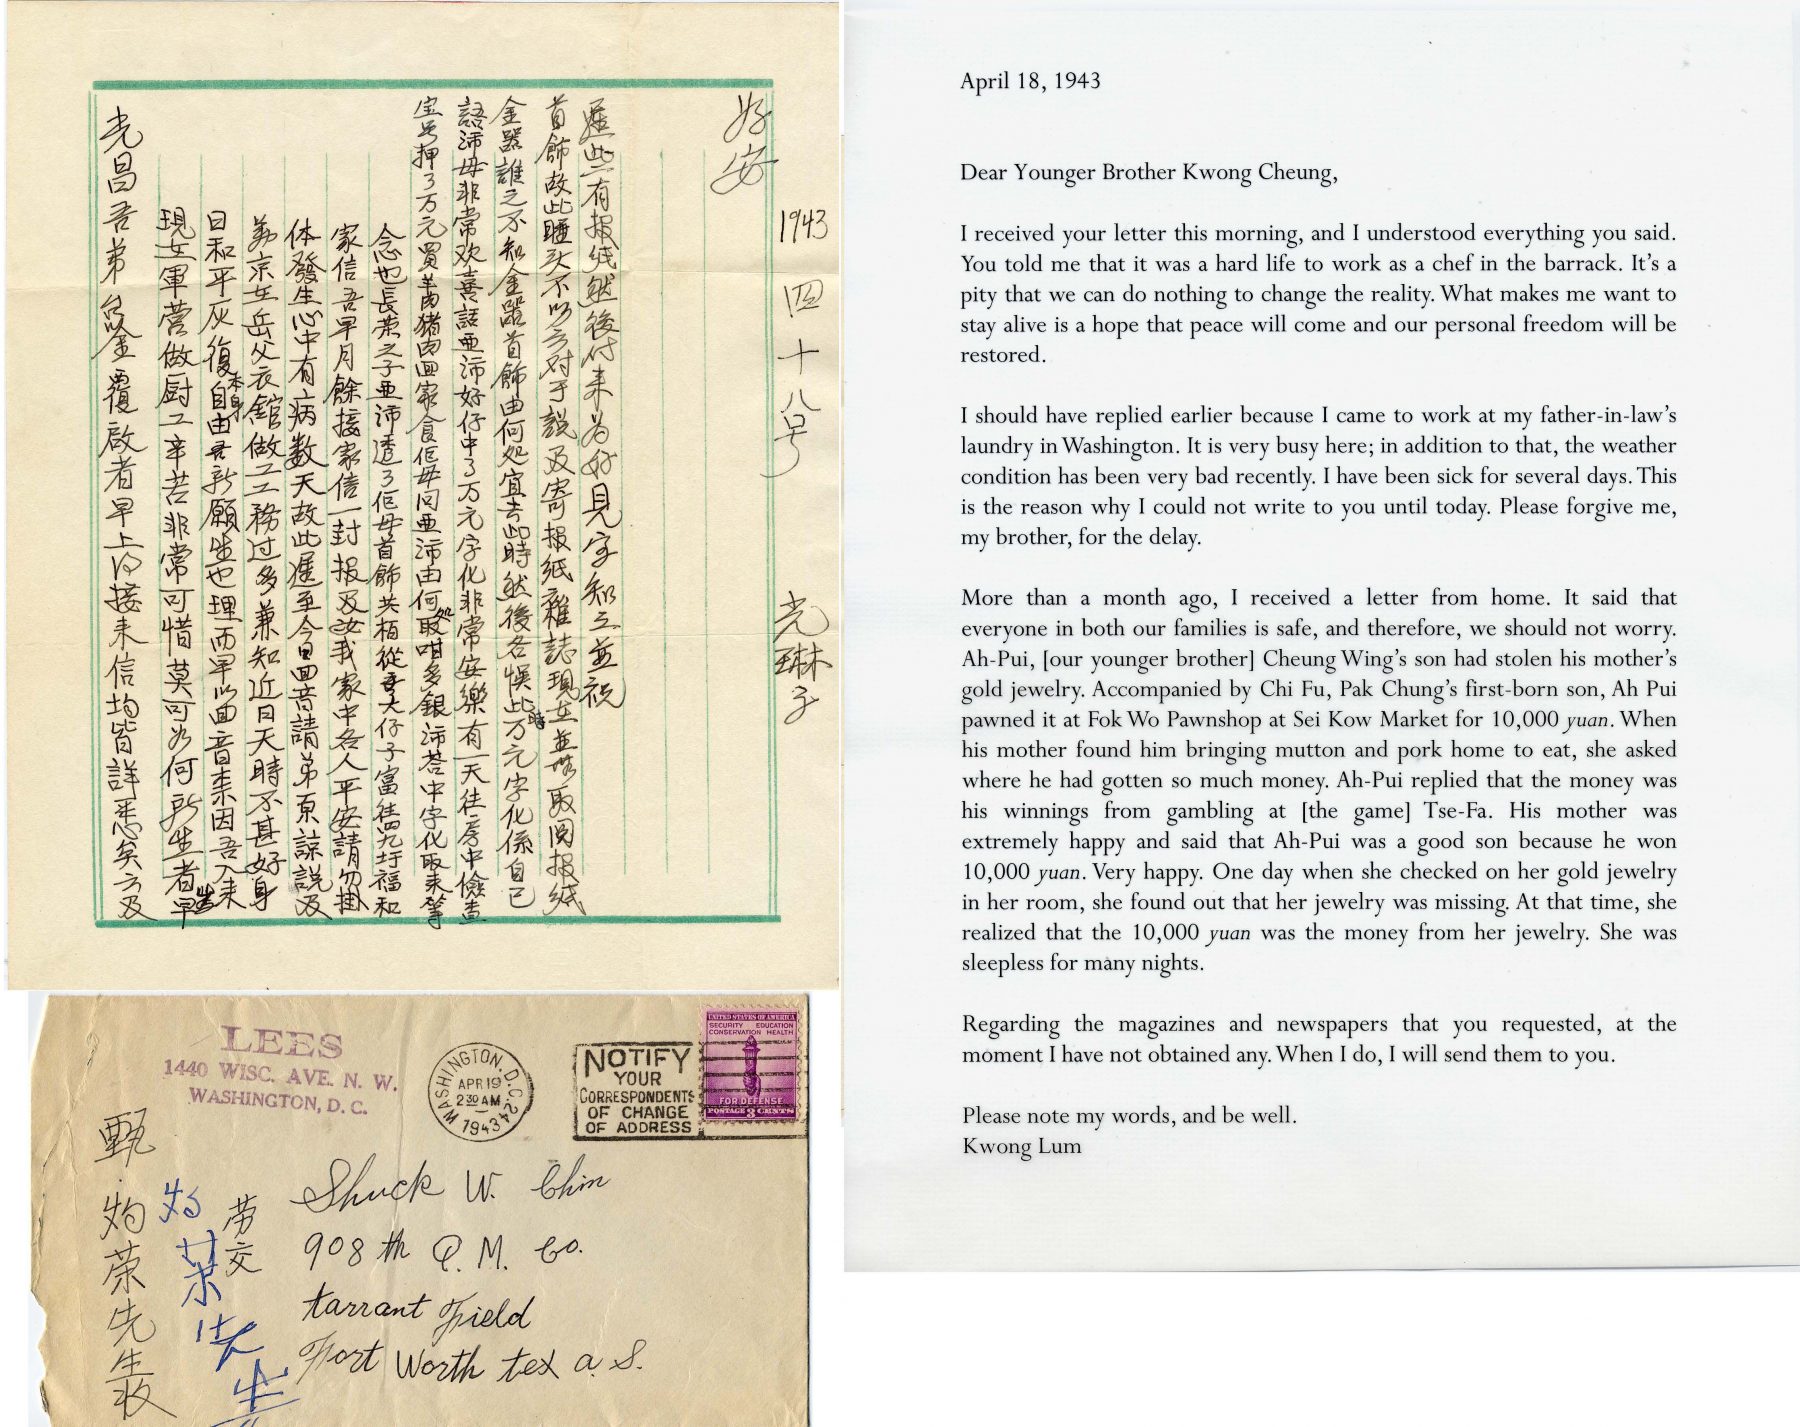 光昌吾弟台鑒覆啟者早上的接来信均皆詳悉矣云及
現在軍營做厨工辛苦非常可惜莫可为何所生者早
日和平灰復本身自由吾所願生也理而早以回音来因吾入来
美京在岳父衣館做工工務过多兼知近日天時不甚好身
体發生心中有病数天故此遲至今日回音請弟原諒説及
家信吾早月餘接家信一封报及汝我家中各人平安請勿掛
念也長荣之子亜沛透了佢母首飾共栢從大仔子富往四九圩福和
宝号押了万元買羊肉猪肉回家食佢毋问亜沛由何処取咁多銀沛答中字化取来等
語沛毋非常欢喜話亜沛好仔中了万元字化非常安樂有一天往房中儉查
金器誰之不知金器首飾由何処宜去此時然後各悮此万元字化係自己
首飾故此睡头不以云对于説及寄报紙雜誌現在並無取閲报紙
遲些有报紙然後付来为好見字知之並祝
好安
1943 四 十八号 光琳字
LEES
1440 WISC. AVE. N. W.
WASHINGTON, D. C.
WASHINGTON, D.C. 24
APR 19
2 30 AM
1943
NOTIFY
YOUR
CORRESPONDENTS
OF CHANGE
OF ADDRESS
UNITED STATES OF AMERICA
SECURITY EDUCATION
CONSERVATION HEALTH
FOR DEFENSE
POSTAGE 3 CENTS
甄灼荣先生收
灼荣先生
劳交
Shuck W. Chin
908 th Q. M. Co.
tarrant Field
Fort Worth tex a. S.
April 18, 1943
Dear Younger Brother Kwong Cheung,
I received your letter this morning, and I understood everything you said.
You told me that it was a hard life to work as a chef in the barrack. It's a
pity that we can do nothing to change the reality. What makes me want to
stay alive is a hope that peace will come and our personal freedom will be
restored.
I should have replied earlier because I came to work at my father-in-law's
laundry in Washington. It is very busy here; in addition to that, the weather
condition has been very bad recently. I have been sick for several days. This
is the reason why I could not write to you until today. Please forgive me,
my brother, for the delay.
More than a month ago, I received a letter from home. It said that
everyone in both our families is safe, and therefore, we should not worry.
Ah-Pui, [our younger brother] Cheung Wing's son had stolen his mother's
gold jewelry. Accompanied by Chi Fu, Pak Chung's first-born son, Ah Pui
pawned it at Fok Wo Pawnshop at Sei Kow Market for 10,000 yuan. When
his mother found him bringing mutton and pork home to eat, she asked
where he had gotten so much money. Ah-Pui replied that the money was
his winnings from gambling at [the game] Tse-Fa. His mother was
extremely happy and said that Ah-Pui was a good son because he won
10,000 yuan. Very happy. One day when she checked on her gold jewelry
in her room, she found out that her jewelry was missing. At that time, she
realized that the 10,000 yuan was the money from her jewelry. She was
sleepless for many nights.
Regarding the magazines and newspapers that you requested, at the
moment I have not obtained any. When I do, I will send them to you.
Please note my words, and be well.
Kwong Lum